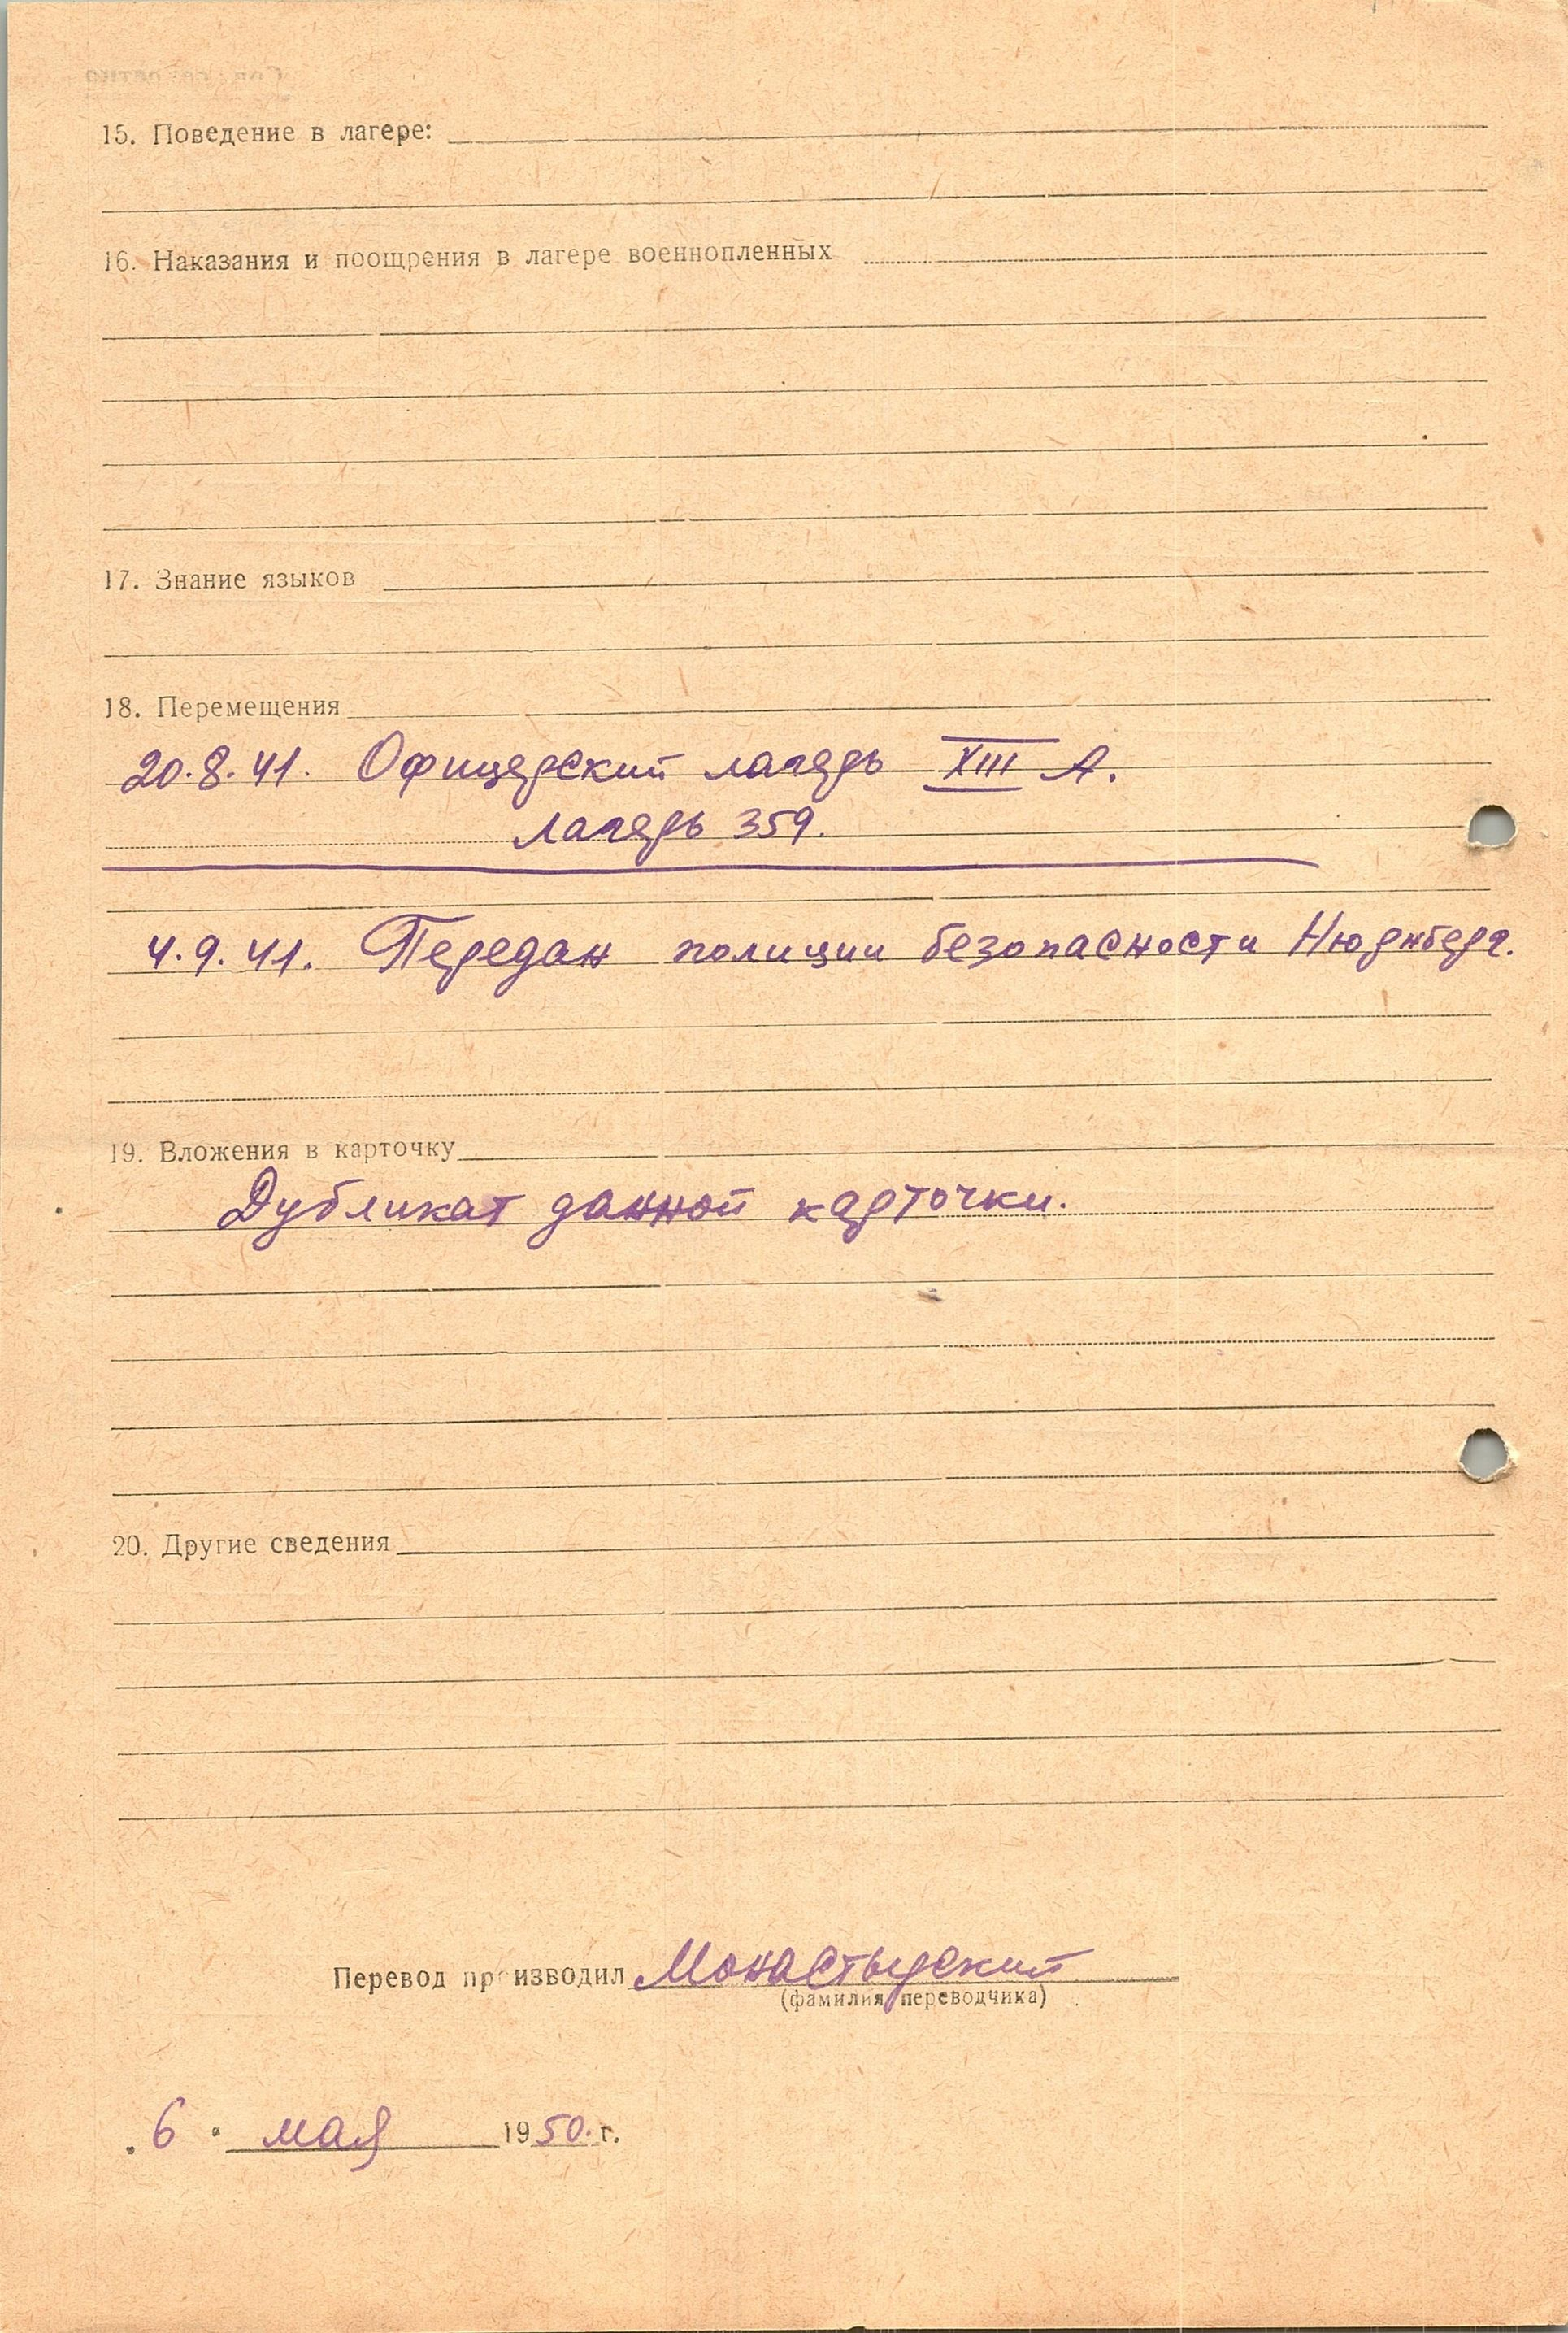 15. Поведение в лагере:
16. Наказания и поощрения в лагере военнопленных
17. Знание языков
18. Перемещения
20.8.41. Офицерский лагерь XIII А.
лагерь 359.
4.9.41. Передан полиции безопасности Нюрнберг.
19. Вложения в карточку
Дубликат данной карточки.
20. Другие сведения
Перевод производил Монастырский
(фамилия переводчика)
„6" мая 1950. г.